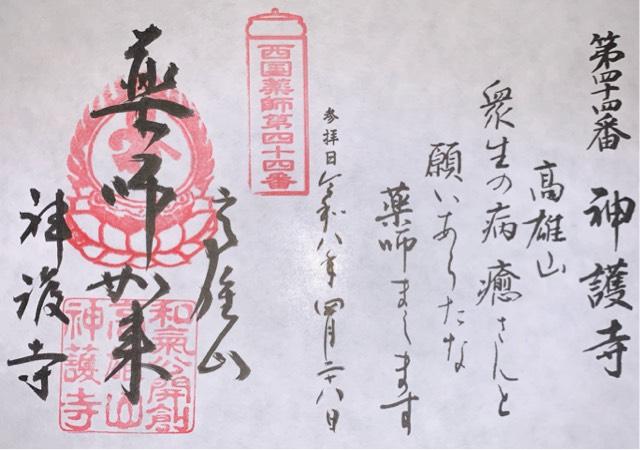 第四十四番 神護寺
高雄山
衆生の病 癒さんと
願いあらたな
薬師まします
参拝日 令和八年 四月二十八日
西国薬師第四十四番
高雄山
薬師如来
神護寺
和氣公開創
高雄山
神護寺